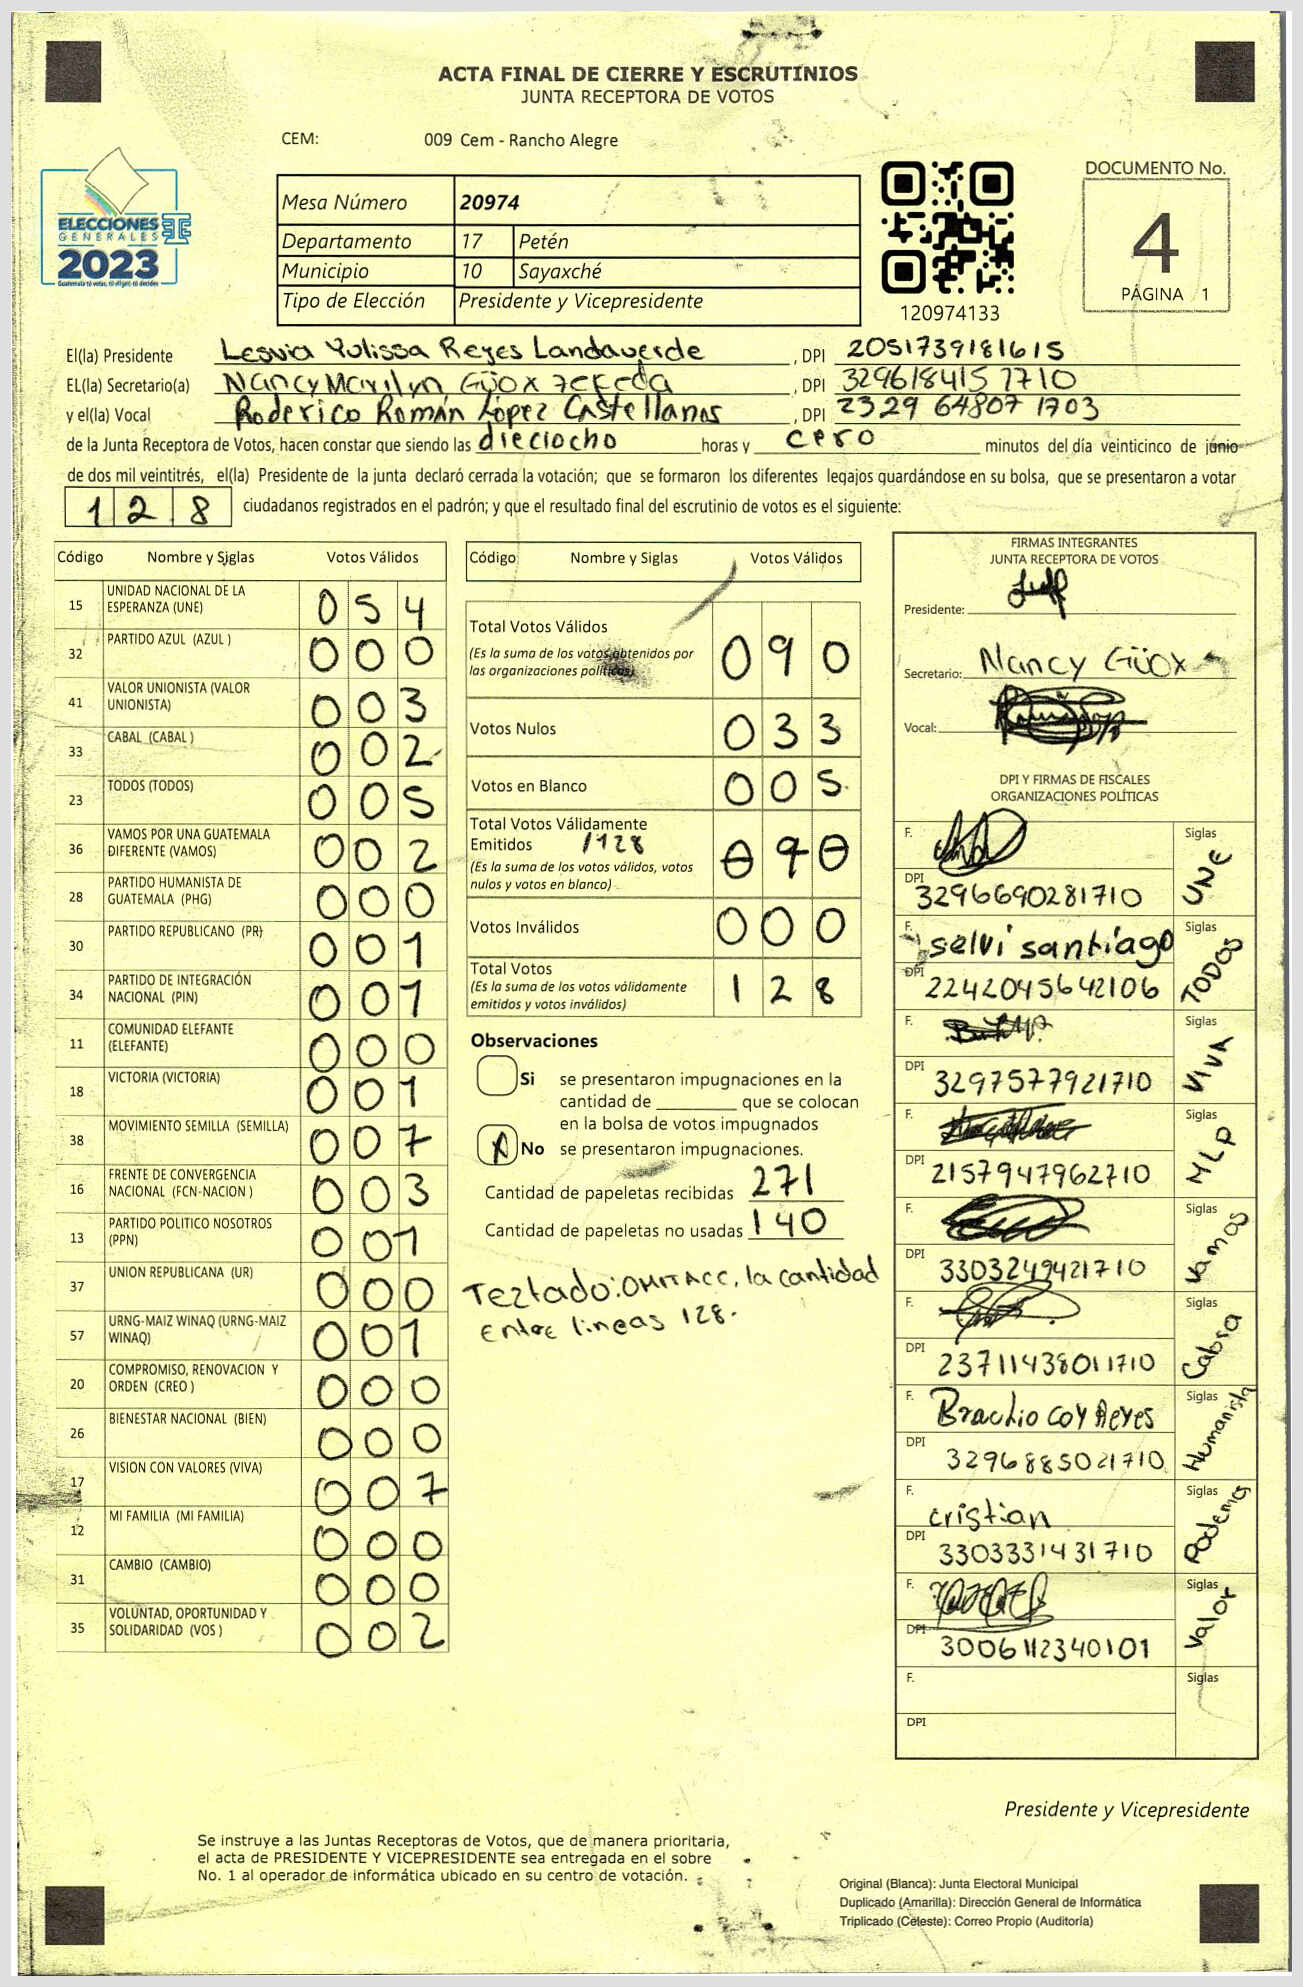 ACTA FINAL DE CIERRE Y ESCRUTINIOS
JUNTA RECEPTORA DE VOTOS
CEM: 009 Cem - Rancho Alegre
ELECCIONES
GENERALES
2023
Guatemala tú votas, tú eliges tú decides
Mesa Número 20974
Departamento 17 Petén
Municipio 10 Sayaxché
Tipo de Elección Presidente y Vicepresidente
120974133
DOCUMENTO No.
4
PÁGINA 1
El(la) Presidente Lesvia Yulissa Reyes Landaverde, DPI 2051739181615
EL(la) Secretario(a) Nancy Marilyn Güox, DPI 3296184157710
y el(la) Vocal Roderico Román López Castellanos, DPI 2329 64807 1703
de la Junta Receptora de Votos, hacen constar que siendo las dieciocho horas y cero minutos del día veinticinco de junio
de dos mil veintitrés, el(la) Presidente de la junta declaró cerrada la votación; que se formaron los diferentes legajos guardándose en su bolsa, que se presentaron a votar
128 ciudadanos registrados en el padrón; y que el resultado final del escrutinio de votos es el siguiente:
Código Nombre y Siglas Votos Válidos
15 UNIDAD NACIONAL DE LA ESPERANZA (UNE) 054
32 PARTIDO AZUL (AZUL ) 000
41 VALOR UNIONISTA (VALOR UNIONISTA) 003
33 CABAL (CABAL ) 002
23 TODOS (TODOS) 005
36 VAMOS POR UNA GUATEMALA DIFERENTE (VAMOS) 002
28 PARTIDO HUMANISTA DE GUATEMALA (PHG) 000
30 PARTIDO REPUBLICANO (PR) 001
34 PARTIDO DE INTEGRACIÓN NACIONAL (PIN) 001
11 COMUNIDAD ELEFANTE (ELEFANTE) 000
18 VICTORIA (VICTORIA) 001
38 MOVIMIENTO SEMILLA (SEMILLA) 007
16 FRENTE DE CONVERGENCIA NACIONAL (FCN-NACION ) 003
13 PARTIDO POLITICO NOSOTROS (PPN) 001
37 UNION REPUBLICANA (UR) 000
57 URNG-MAIZ WINAQ (URNG-MAIZ WINAQ) 001
20 COMPROMISO, RENOVACION Y ORDEN (CREO ) 000
26 BIENESTAR NACIONAL (BIEN) 000
17 VISION CON VALORES (VIVA) 007
12 MI FAMILIA (MI FAMILIA) 000
31 CAMBIO (CAMBIO) 000
35 VOLUNTAD, OPORTUNIDAD Y SOLIDARIDAD (VOS ) 002
Código Nombre y Siglas Votos Válidos
Total Votos Válidos 090
(Es la suma de los votos obtenidos por
las organizaciones políticas)
Votos Nulos 033
Votos en Blanco 005
Total Votos Válidamente
Emitidos /128 090
(Es la suma de los votos válidos, votos
nulos y votos en blanco)
Votos Inválidos 000
Total Votos 128
(Es la suma de los votos válidamente
emitidos y votos inválidos)
Observaciones
Si se presentaron impugnaciones en la
cantidad de que se colocan
en la bolsa de votos impugnados
X No se presentaron impugnaciones.
Cantidad de papeletas recibidas 271
Cantidad de papeletas no usadas 140
Teztado: OMITACC, la cantidad
Entre lineas 128.
FIRMAS INTEGRANTES
JUNTA RECEPTORA DE VOTOS
Presidente:
Secretario: Nancy Güox
Vocal:
DPI Y FIRMAS DE FISCALES
ORGANIZACIONES POLÍTICAS
F. Siglas UNE
DPI 3296690281710
F. selvi santiago Siglas TODOS
DPI 2242045642106
F. Siglas VIVA
DPI 3297577921710
F. Siglas MLP
DPI 2157947962710
F. Siglas Vamos
DPI 3303249421710
F. Siglas Cabra
DPI 2371143801 1710
F. Coy Reyes Siglas Humanista
DPI 3296885021710
F. cristian Siglas Podemos
DPI 3303331431710
F. Siglas Valor
DPI 3006112340101
F. Siglas
DPI
Presidente y Vicepresidente
Se instruye a las Juntas Receptoras de Votos, que de manera prioritaria,
el acta de PRESIDENTE Y VICEPRESIDENTE sea entregada en el sobre
No. 1 al operador de informática ubicado en su centro de votación.
Original (Blanca): Junta Electoral Municipal
Duplicado (Amarilla): Dirección General de Informática
Triplicado (Celeste): Correo Propio (Auditoría)